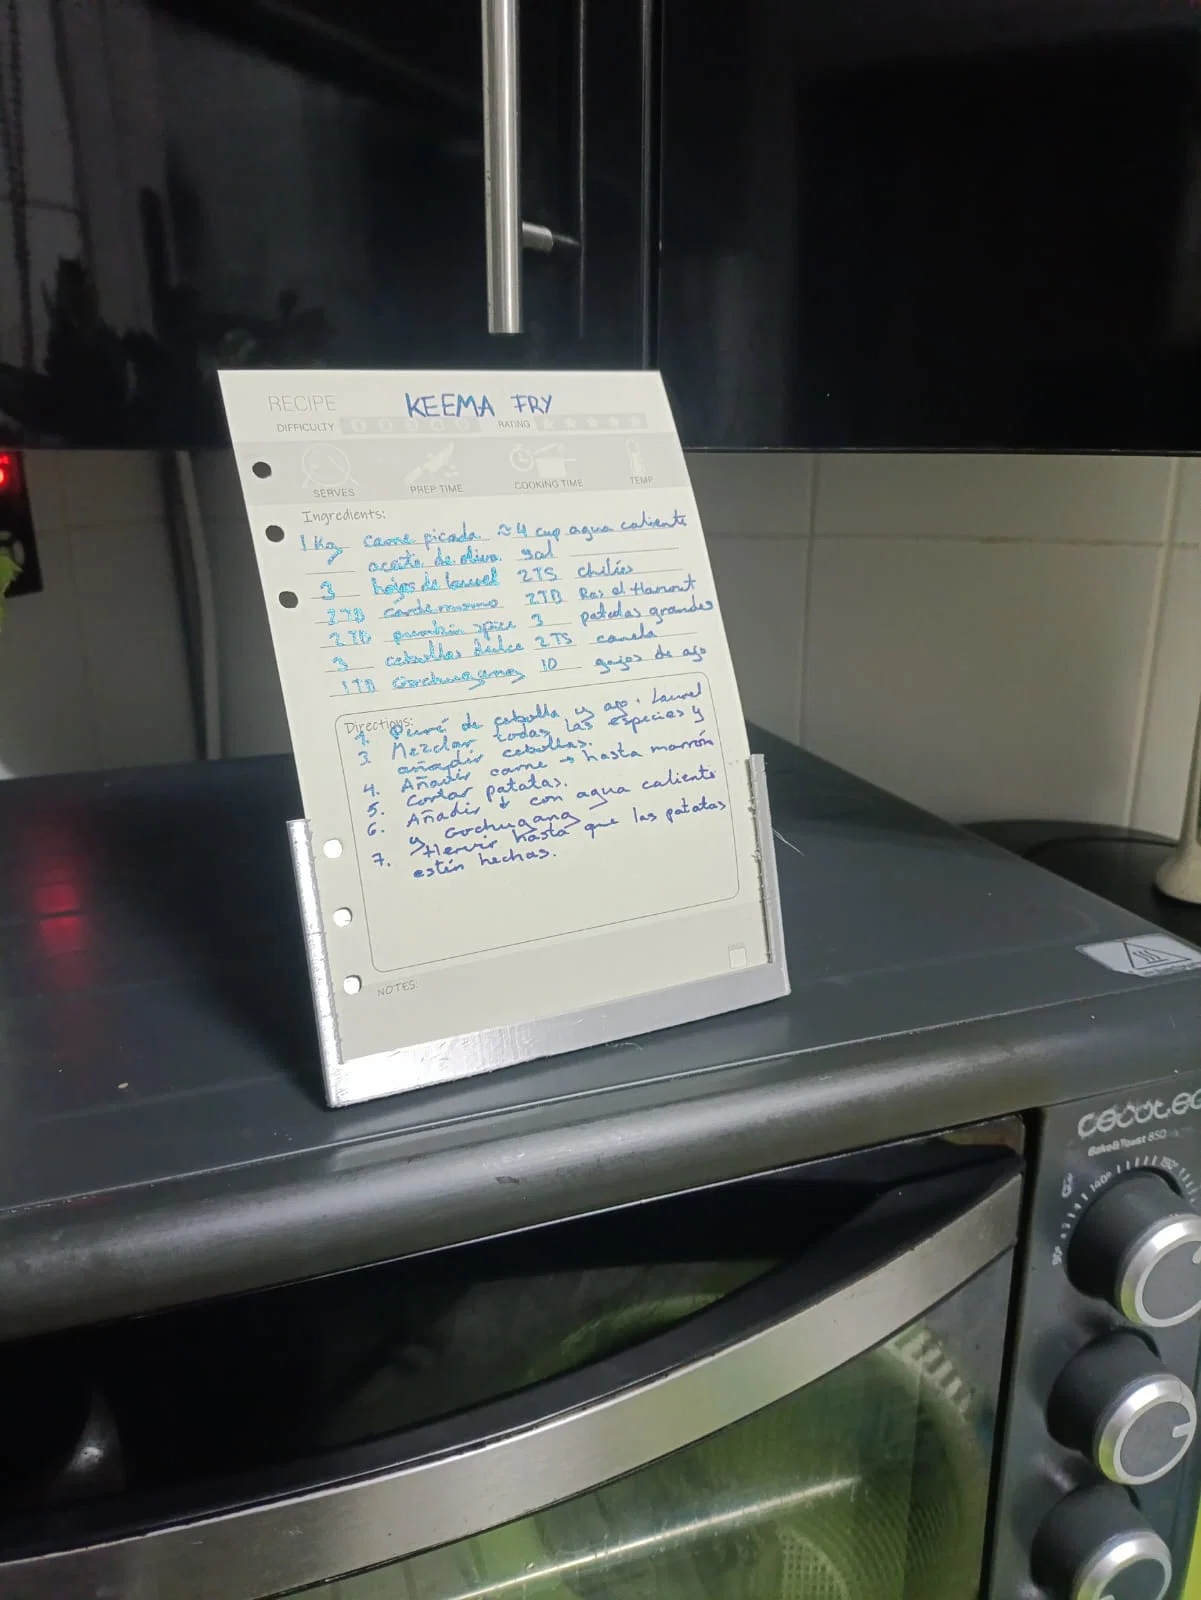 RECIPE KEEMA FRY
DIFFICULTY RATING
SERVES PREP TIME COOKING TIME TEMP
Ingredients:
1 Kg carne picada ≈4 cup agua caliente
aceite de oliva sal
3 hojas de laurel 2TS chilies
2TB cardemomo 2TB Ras el Hanout
2TB pumkin spice 3 patatas grandes
3 cebollas dulce 2TS canela
1TB Gochugang 10 gajos de ajo
Directions:
1. Puré de cebolla y ajo. Laurel
3. Mezclar todas las especies y
añadir cebollas.
4. Añadir carne → hasta marrón
5. Cortar patatas.
6. Añadir ↓ con agua caliente
y Gochugang
7. Hervir hasta que las patatas
estén hechas.
NOTES:
cecotec
Bake&Toast 850